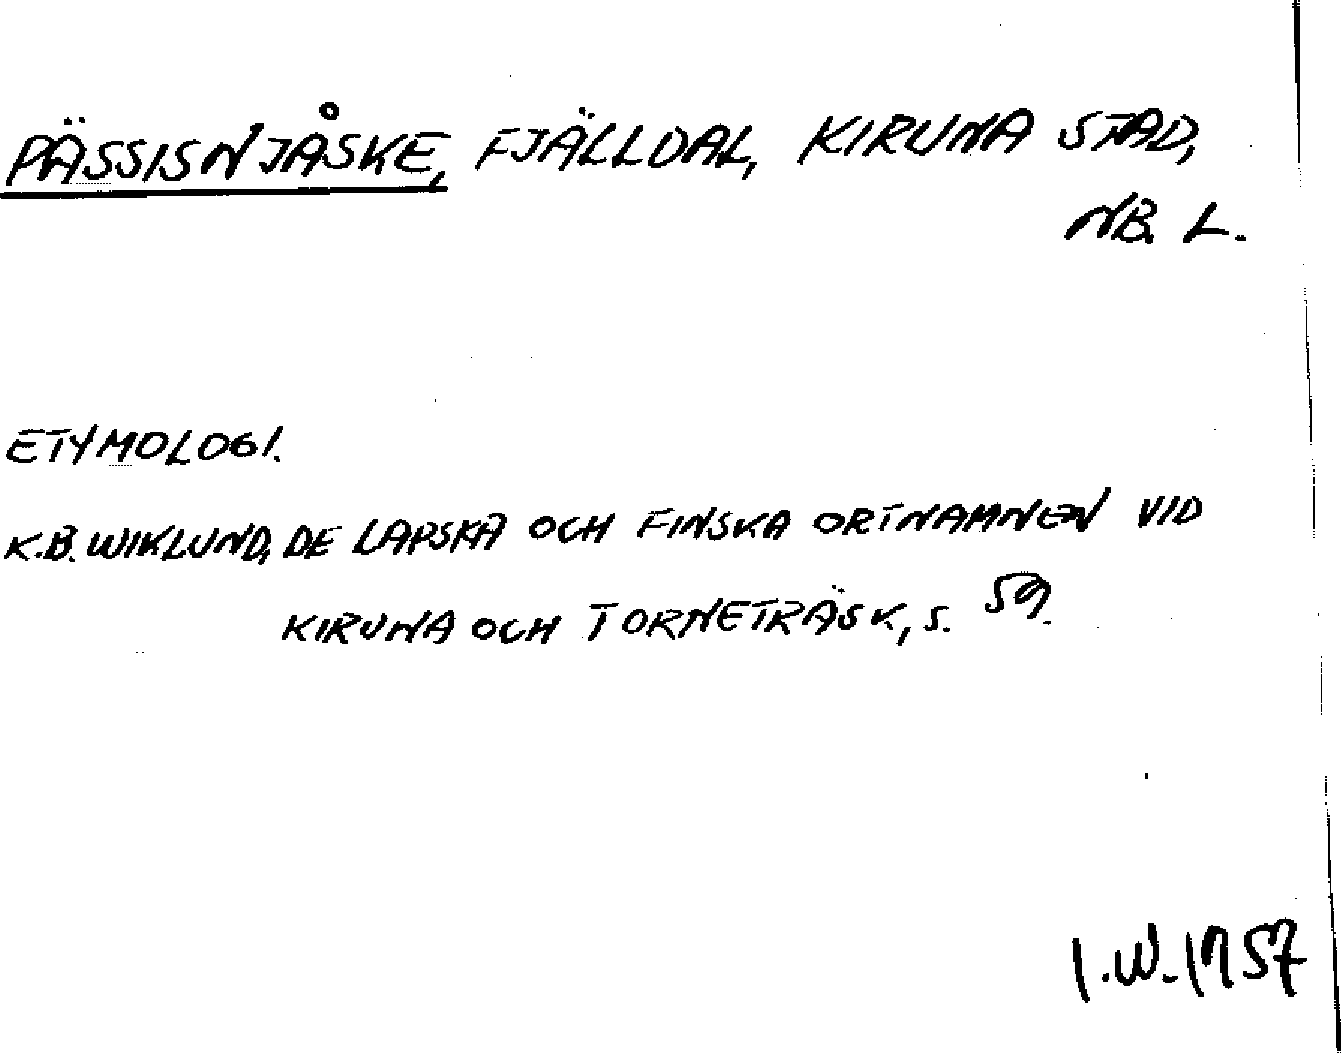 PÄSSISNJÅSKE, FJÄLLDAL, KIRUNA STAD,
NB. L.
ETYMOLOGI.
K.B. WIKLUND, DE LAPSKA OCH FINSKA ORTNAMNEN VID
KIRUNA OCH TORNETRÄSK, S. 59.
I.W. 1957